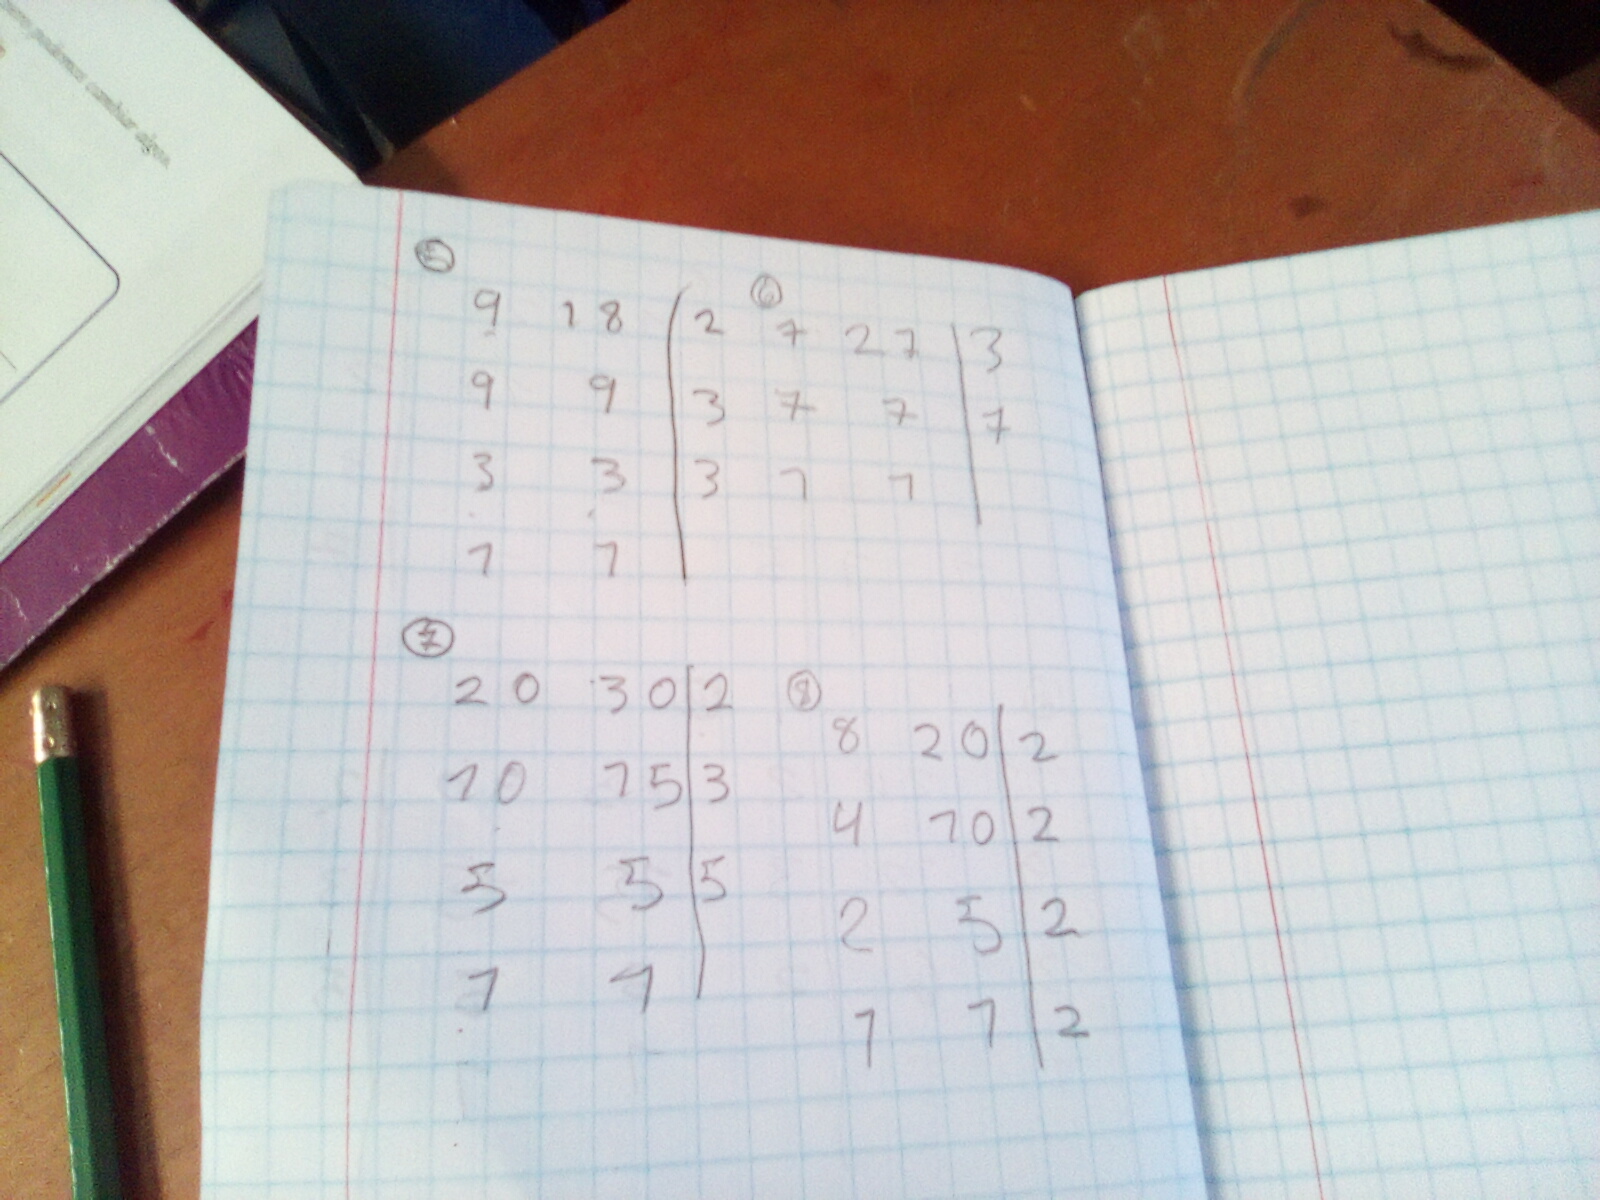 cambiar
5
9 18 | 2
9 9 | 3
3 3 | 3
1 1
6
7 21 | 3
7 7 | 7
1 1
7
20 30 | 2
10 15 | 3
5 5 | 5
1 1
8
8 20 | 2
4 10 | 2
2 5 | 2
1 1 | 2